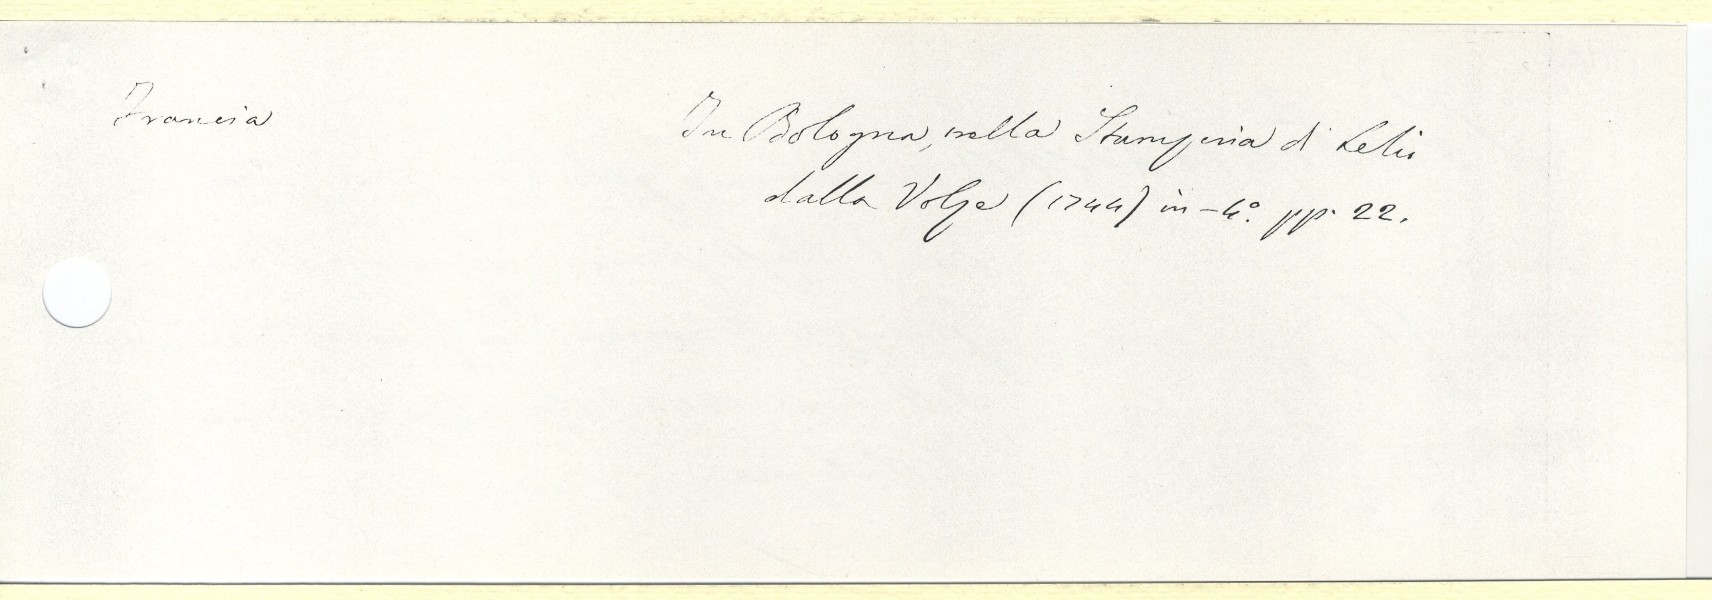 Francia
In Bologna, nella Stamperia di Lelio
dalla Volpe (1744) in-4.º pp. 22.